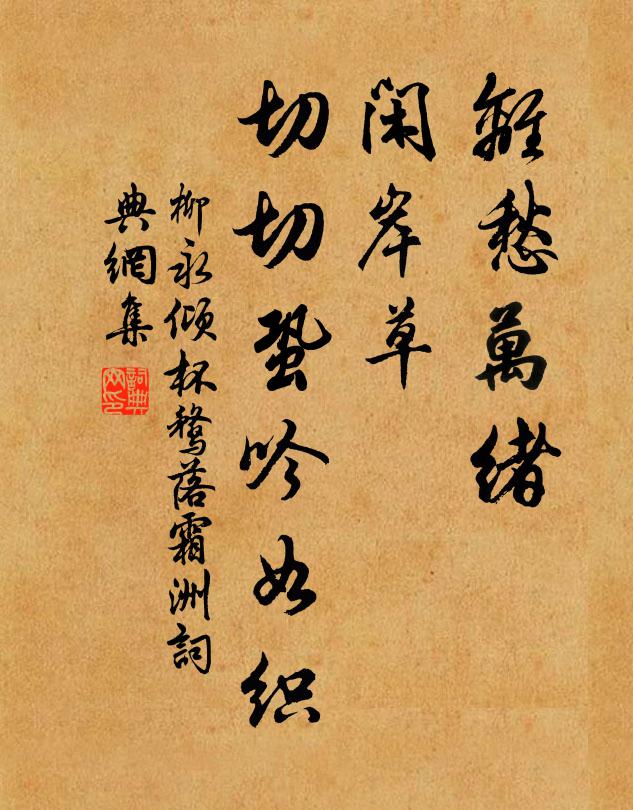 離愁萬緒
聞岸草
切切蛩吟如織
柳永傾杯鶩落霜洲詞
典網集
詞典
网印